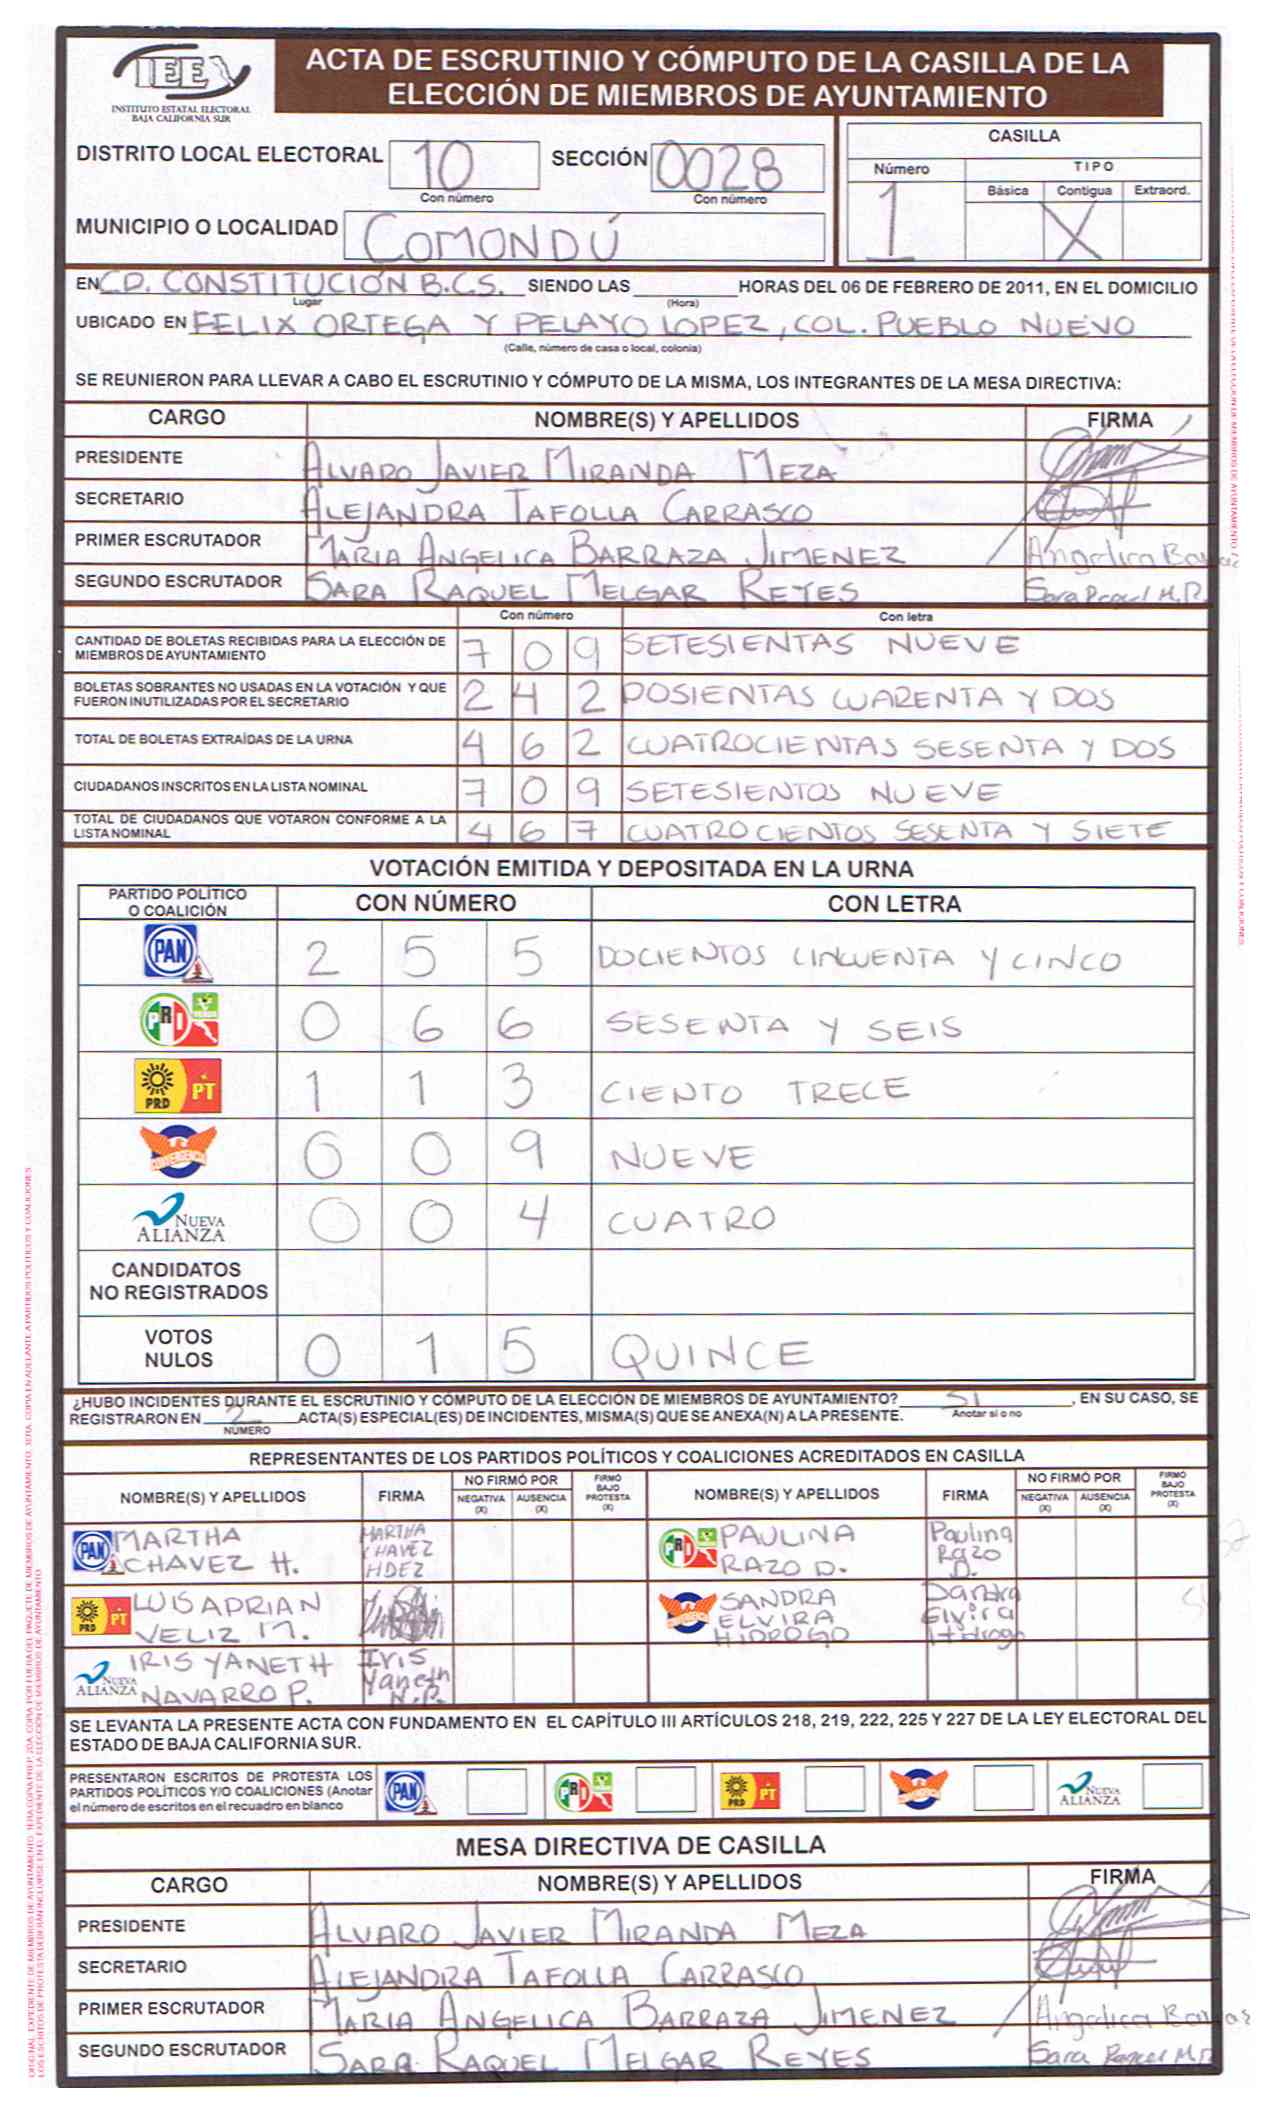 IEE
INSTITUTO ESTATAL ELECTORAL
BAJA CALIFORNIA SUR
ACTA DE ESCRUTINIO Y CÓMPUTO DE LA CASILLA DE LA
ELECCIÓN DE MIEMBROS DE AYUNTAMIENTO
DISTRITO LOCAL ELECTORAL 10 SECCIÓN 0028
Con número Con número
MUNICIPIO O LOCALIDAD COMONDÚ
CASILLA
Número TIPO
Básica Contigua Extraord.
1 X
EN CD. CONSTITUCIÓN B.C.S. SIENDO LAS ________ HORAS DEL 06 DE FEBRERO DE 2011, EN EL DOMICILIO
Lugar (Hora)
UBICADO EN FELIX ORTEGA Y PELAYO LOPEZ, COL. PUEBLO NUEVO
(Calle, número de casa o local, colonia)
SE REUNIERON PARA LLEVAR A CABO EL ESCRUTINIO Y CÓMPUTO DE LA MISMA, LOS INTEGRANTES DE LA MESA DIRECTIVA:
CARGO NOMBRE(S) Y APELLIDOS FIRMA
PRESIDENTE ALVARO JAVIER MIRANDA MEZA
SECRETARIO ALEJANDRA TAFOLLA CARRASCO
PRIMER ESCRUTADOR MARIA ANGELICA BARRAZA JIMENEZ Angelica
SEGUNDO ESCRUTADOR SARA RAQUEL MELGAR REYES Sara Raquel M.R.
Con número Con letra
CANTIDAD DE BOLETAS RECIBIDAS PARA LA ELECCIÓN DE
MIEMBROS DE AYUNTAMIENTO 7 0 9 SETESIENTAS NUEVE
BOLETAS SOBRANTES NO USADAS EN LA VOTACIÓN Y QUE
FUERON INUTILIZADAS POR EL SECRETARIO 2 4 2 DOSIENTAS CUARENTA Y DOS
TOTAL DE BOLETAS EXTRAÍDAS DE LA URNA 4 6 2 CUATROCIENTAS SESENTA Y DOS
CIUDADANOS INSCRITOS EN LA LISTA NOMINAL 7 0 9 SETESIENTOS NUEVE
TOTAL DE CIUDADANOS QUE VOTARON CONFORME A LA
LISTA NOMINAL 4 6 7 CUATROCIENTOS SESENTA Y SIETE
VOTACIÓN EMITIDA Y DEPOSITADA EN LA URNA
PARTIDO POLÍTICO
O COALICIÓN CON NÚMERO CON LETRA
PAN 2 5 5 DOCIENTOS CINCUENTA Y CINCO
PRI VERDE 0 6 6 SESENTA Y SEIS
PRD PT 1 1 3 CIENTO TRECE
CONVERGENCIA 0 0 9 NUEVE
NUEVA ALIANZA 0 0 4 CUATRO
CANDIDATOS
NO REGISTRADOS
VOTOS
NULOS 0 1 5 QUINCE
¿HUBO INCIDENTES DURANTE EL ESCRUTINIO Y CÓMPUTO DE LA ELECCIÓN DE MIEMBROS DE AYUNTAMIENTO? SI, EN SU CASO, SE
REGISTRARON EN 2 ACTA(S) ESPECIAL(ES) DE INCIDENTES, MISMA(S) QUE SE ANEXA(N) A LA PRESENTE. Anotar si o no
NÚMERO
REPRESENTANTES DE LOS PARTIDOS POLÍTICOS Y COALICIONES ACREDITADOS EN CASILLA
NOMBRE(S) Y APELLIDOS FIRMA NO FIRMÓ POR NEGATIVA (X) AUSENCIA (X) FIRMÓ BAJO PROTESTA (X) NOMBRE(S) Y APELLIDOS FIRMA NO FIRMÓ POR NEGATIVA (X) AUSENCIA (X) FIRMÓ BAJO PROTESTA (X)
PAN MARTHA CHAVEZ H. MARTHA CHAVEZ HDEZ PRI PAULINA RAZO D. Paulina Razo D.
PRD PT LUIS ADRIAN VELIZ M. CONVERGENCIA SANDRA ELVIRA HIDROGO Sandra Elvira Hidrogo
NUEVA ALIANZA IRIS YANETH NAVARRO P. Iris Yaneth N.P.
SE LEVANTA LA PRESENTE ACTA CON FUNDAMENTO EN EL CAPÍTULO III ARTÍCULOS 218, 219, 222, 225 Y 227 DE LA LEY ELECTORAL DEL
ESTADO DE BAJA CALIFORNIA SUR.
PRESENTARON ESCRITOS DE PROTESTA LOS
PARTIDOS POLÍTICOS Y/O COALICIONES (Anotar
el número de escritos en el recuadro en blanco
PAN PRI PRD PT CONVERGENCIA NUEVA ALIANZA
MESA DIRECTIVA DE CASILLA
CARGO NOMBRE(S) Y APELLIDOS FIRMA
PRESIDENTE ALVARO JAVIER MIRANDA MEZA
SECRETARIO ALEJANDRA TAFOLLA CARRASCO
PRIMER ESCRUTADOR MARIA ANGELICA BARRAZA JIMENEZ Angelica
SEGUNDO ESCRUTADOR SARA RAQUEL MELGAR REYES Sara Raquel M.R.